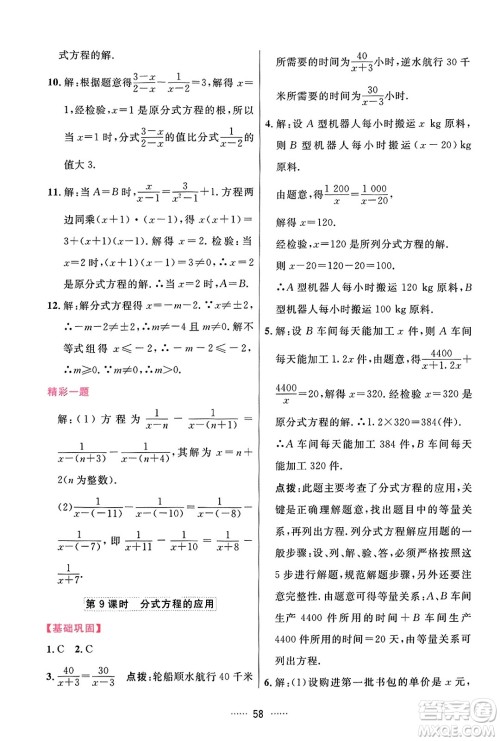 式方程的解.
10. 解：根据题意得 \frac{3-x}{2-x} - \frac{1}{x-2} = 3，解得 x
=1，经检验，x=1 是原分式方程的根，所以
当 x=1 时，分式 \frac{3-x}{2-x} 的值比分式 \frac{1}{x-2} 的
值大 3.
11. 解：当 A=B 时，\frac{x}{x+1} = \frac{3}{x²-1} + 1. 方程两
边同乘 (x+1)·(x-1)，得 x(x-1)=
3+(x+1)(x-1). 解得 x=-2. 检验：当
x=-2 时，(x+1)(x-1)=3≠0. ∴x=-2
是原分式方程的解. ∴当 x=-2 时，A=B.
12. 解：解分式方程得 x=-m-2. ∵x≠±2，
∴-m-2≠±2，∴m≠-4 且 m≠0. ∵不
等式组 x≤-2，∴-m-2≤-2，
∴m≥0. ∵m≠0，∴m>0.
精彩一题
解：(1) 方程为 \frac{1}{x-n} - \frac{1}{x-(n+1)} =
\frac{1}{x-(n+3)} - \frac{1}{x-(n+4)}，x=n+2
(n 为整数).
(2) \frac{1}{x-(-10)} - \frac{1}{x-(-9)} =
\frac{1}{x-(-7)}，即 \frac{1}{x+10} - \frac{1}{x+9} =
\frac{1}{x+7}.
第 9 课时 分式方程的应用
【基础巩固】
1. C 2. C
3. \frac{40}{x+3} = \frac{30}{x-3} 点拨：轮船顺水航行 40 千米
所需要的时间为 \frac{40}{x+3} 小时，逆水航行 30 千
米所需要的时间为 \frac{30}{x-3} 小时.
4. 解：设 A 型机器人每小时搬运 x kg 原料，
则 B 型机器人每小时搬运 (x-20) kg
原料.
由题意，得 \frac{1 200}{x} = \frac{1 000}{x-20}，
解得 x=120.
经检验，x=120 是所列分式方程的解.
当 x=120 时，x-20=120-20=100.
∴A 型机器人每小时搬运 120 kg 原料，
B 型机器人每小时搬运 100 kg 原料.
5. 解：设 B 车间每天能加工 x 件，则 A 车间
每天能加工 1.2x 件，由题意，得 \frac{4400}{x+1.2x} +
\frac{4400}{x} = 20，解得 x=320，经检验，x=320 是
原分式方程的解. ∴1.2×320=384(件).
∴A 车间每天能加工 384 件，B 车间每天
能加工 320 件.
点拨：此题主要考查了分式方程的应用，关
键是正确理解题意，找出题目中的等量关
系，列出方程. 列分式方程解应用题的一
般步骤：设、列、解、验、答，必须严格按照这
5 步进行，规范解题步骤，另外还要注意完
整性. 此题的等量关系为：A、B 两车间生
产 4400 件所用的时间+B 车间生产 4400
件所用的时间=20 天，由等量关系可列出
方程.
6. 解：(1) 设购进第一批书包的单价是 x 元，
58